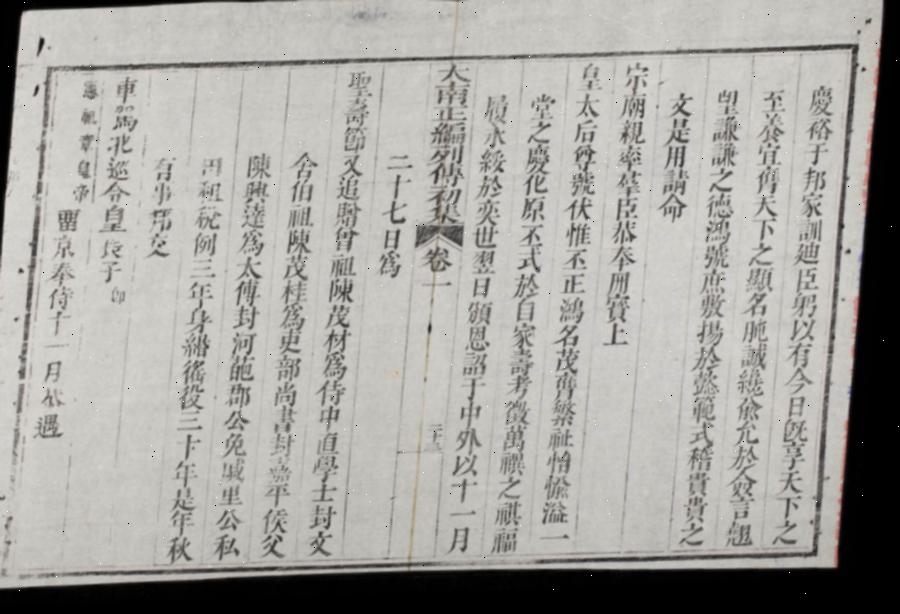 慶裕于邦家訓迪臣躬以有今日既享天下之
至養宜膺天下之顯名肫誠纔僉允於僉言翹
望謙謙之德鴻號庶敷揚於懿範式稽貴貴之
文是用請命
宗廟親率羣臣恭奉冊寶上
皇太后尊號伏惟丕正鴻名茂膺繁祉怡愉溢一
堂之慶化原丕式於自家壽考徵萬禩之祺福
履永綏於奕世翌日頒恩詔于中外以十一月
大南正編列傳初集 卷一
二十七日為
聖壽節又追贈曾祖陳茂材為侍中直學士封文
舍伯祖陳茂桂為吏部尚書封嘉平侯父
陳興達為太傅封河葩郡公免戚里公私
田租稅例三年身緡徭役三十年是年秋
有事邦交
車駕北巡令皇長子 卽
憲祖章皇帝 留京奉侍十一月 遇